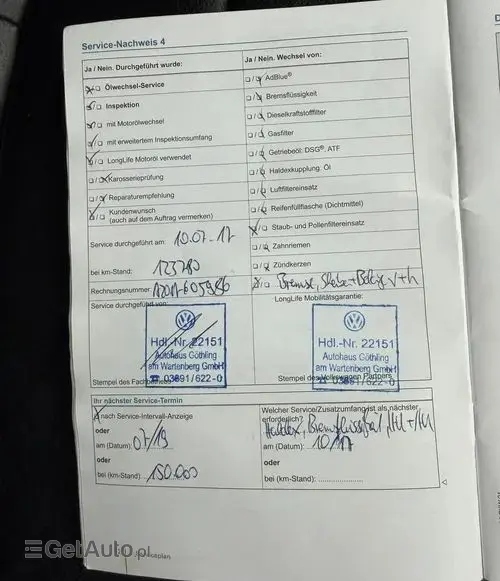 Service-Nachweis 4
Ja / Nein. Durchgeführt wurde:
Ölwechsel-Service
Inspektion
mit Motorölwechsel
mit erweitertem Inspektionsumfang
LongLife Motoröl verwendet
Karosserieprüfung
Reparaturempfehlung
Kundenwunsch
(auch auf dem Auftrag vermerken)
Service durchgeführt am: 10.07.17
bei km-Stand: 123780
Rechnungsnummer:
Service durchgeführt von:
Hdl.-Nr. 22151
Autohaus Göthling
am Wartenberg GmbH
☎ 03691/622-0
Stempel des Fachbetriebs
Ja / Nein. Wechsel von:
AdBlue®
Bremsflüssigkeit
Dieselkraftstofffilter
Gasfilter
Getriebeöl: DSG®, ATF
Haldexkupplung: Öl
Luftfiltereinsatz
Reifenfüllflasche (Dichtmittel)
Staub- und Pollenfiltereinsatz
Zahnriemen
Zündkerzen
Bremse, v+h
LongLife Mobilitätsgarantie:
Hdl.-Nr. 22151
Autohaus Göthling
am Wartenberg GmbH
☎ 03691/622-0
Stempel des Volkswagen Partners
Ihr nächster Service-Termin
nach Service-Intervall-Anzeige
oder
am (Datum): 07/19
oder
bei (km-Stand): 150.000
Welcher Service/Zusatzumfang ist als nächster
erforderlich?
Haldex,
am (Datum): 10/17
oder
bei (km-Stand):
Serviceplan
GetAuto.pl